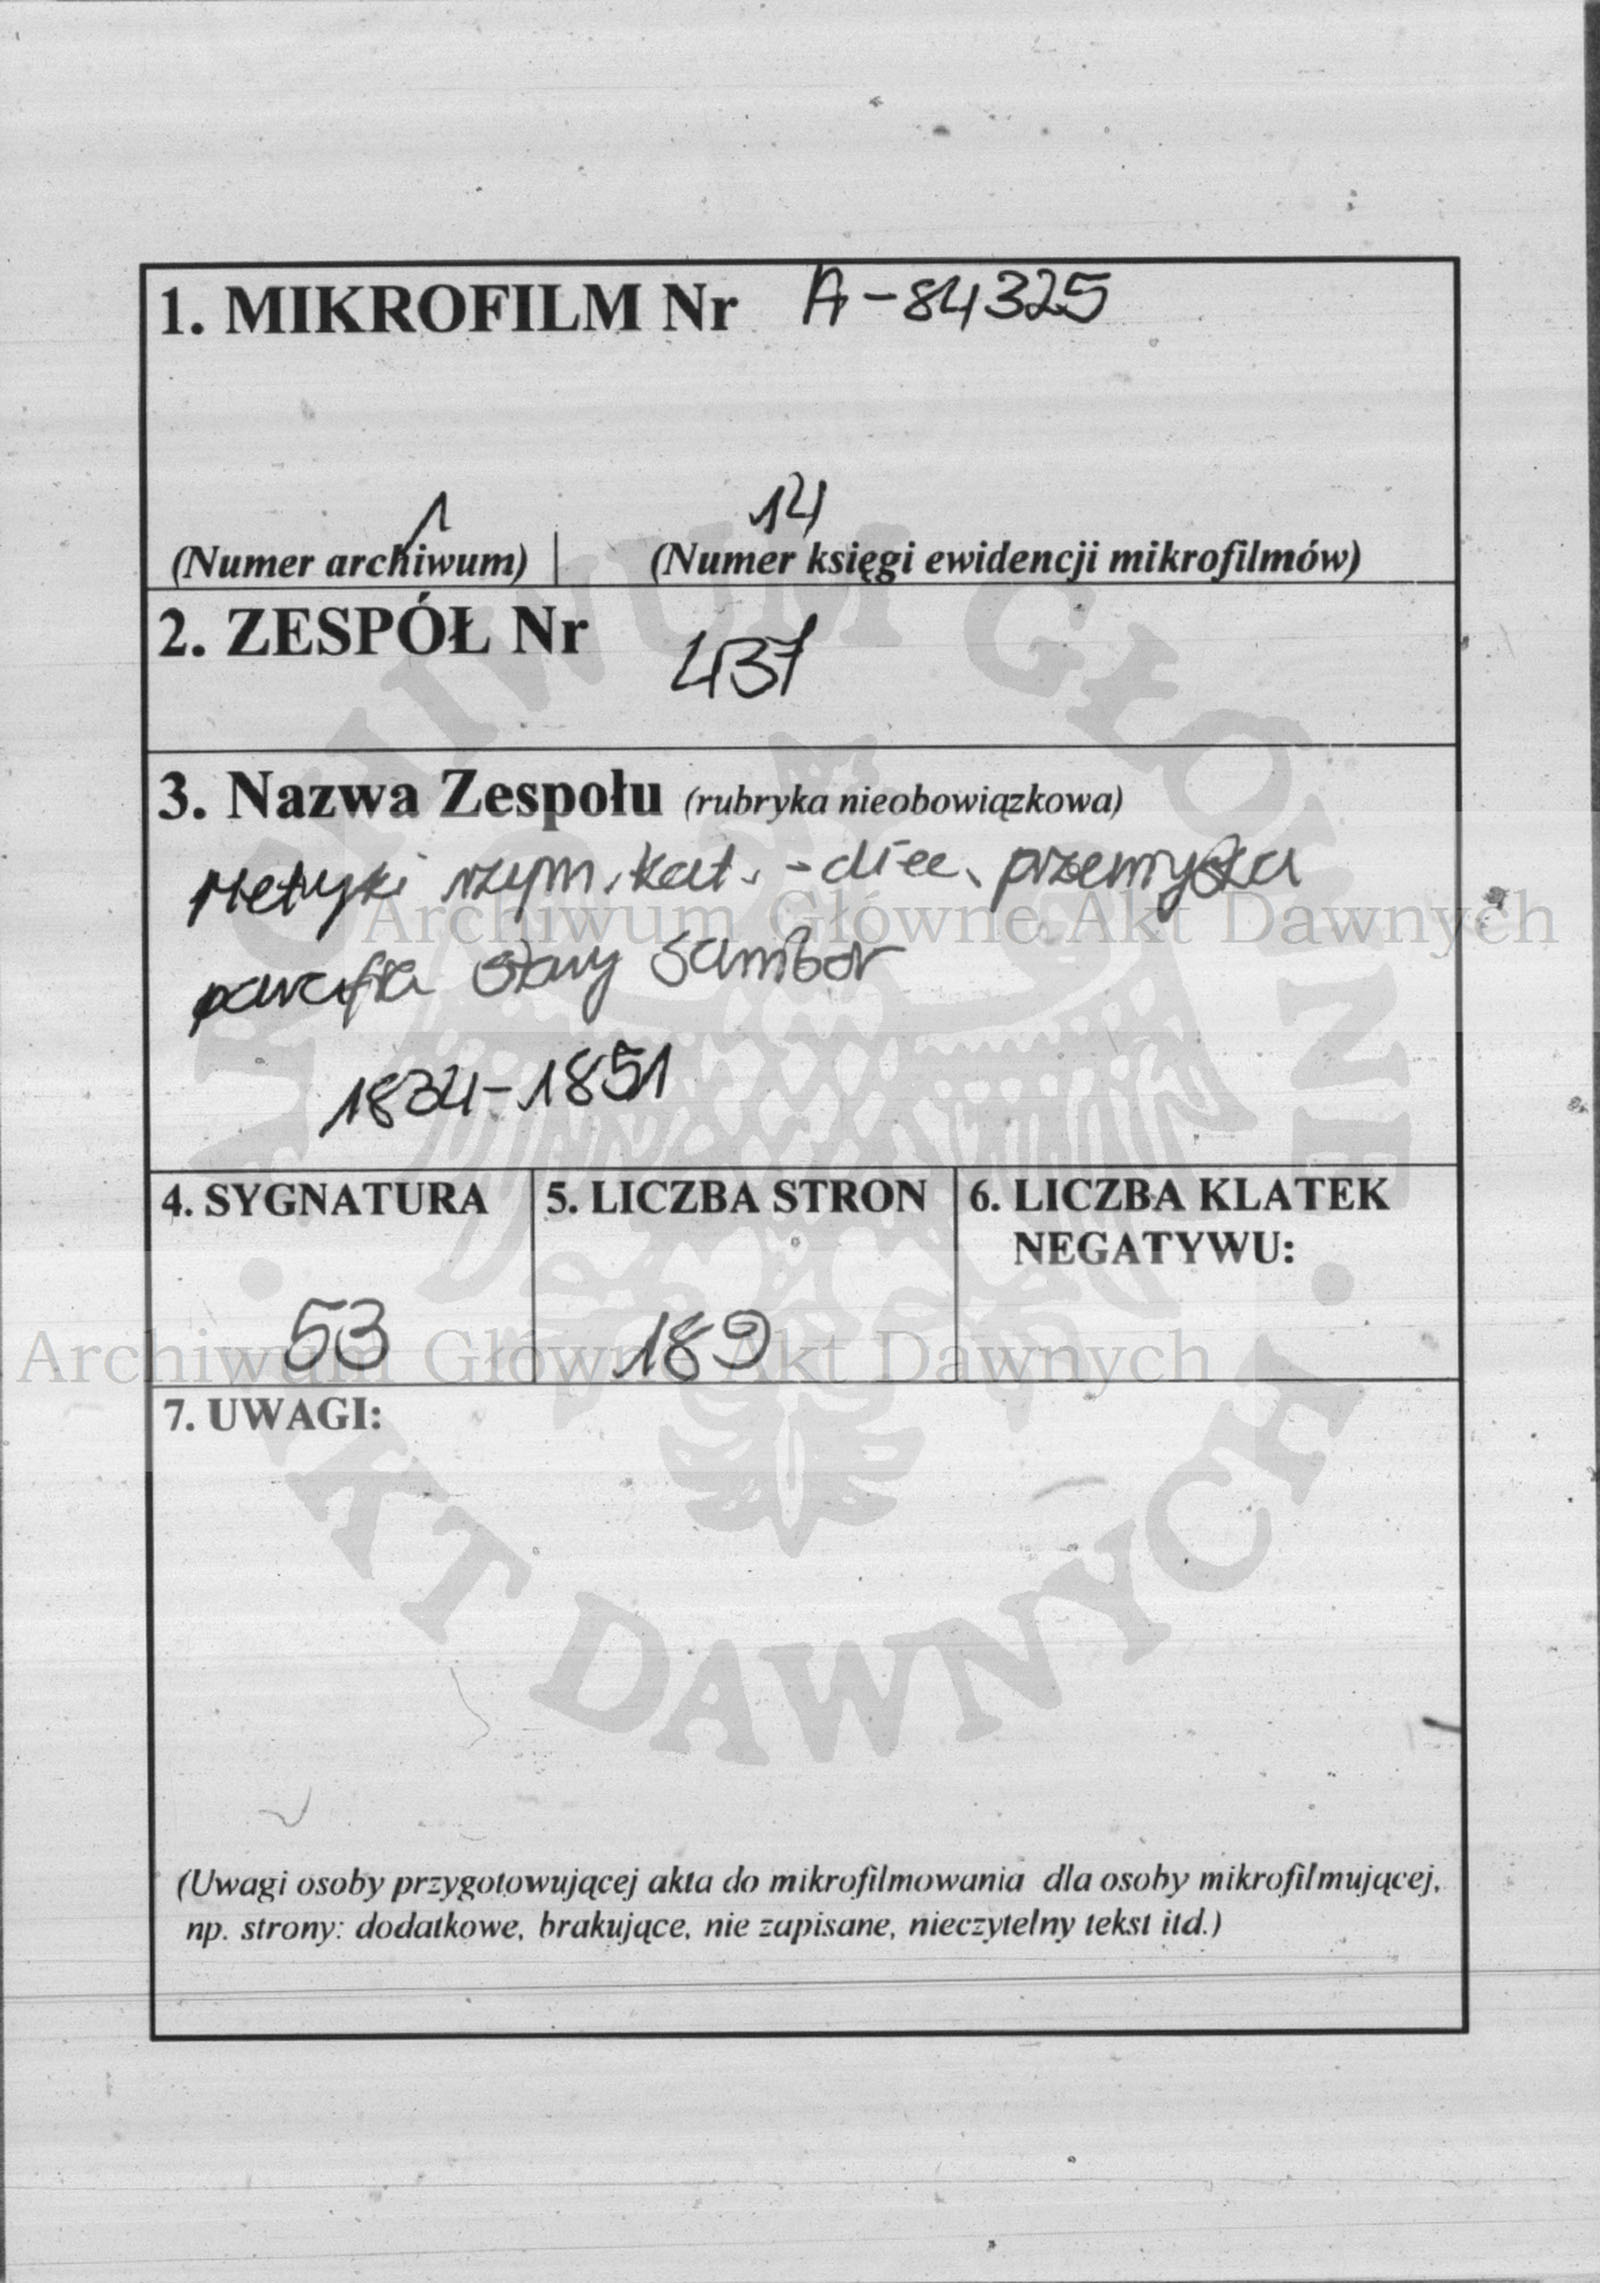 1. MIKROFILM Nr A-84325
1 14
(Numer archiwum) | (Numer księgi ewidencji mikrofilmów)
2. ZESPÓŁ Nr
437
3. Nazwa Zespołu (rubryka nieobowiązkowa)
Metryki rzym.kat. - diec. przemyska
parafia Stary Sambor
1834-1851
4. SYGNATURA
53
5. LICZBA STRON
189
6. LICZBA KLATEK
NEGATYWU:
7. UWAGI:
(Uwagi osoby przygotowującej akta do mikrofilmowania dla osoby mikrofilmującej,
np. strony: dodatkowe, brakujące, nie zapisane, nieczytelny tekst itd.)
Archiwum Główne Akt Dawnych
Archiwum Główne Akt Dawnych
ARCHIWUM GŁÓWNE · AKT DAWNYCH ·